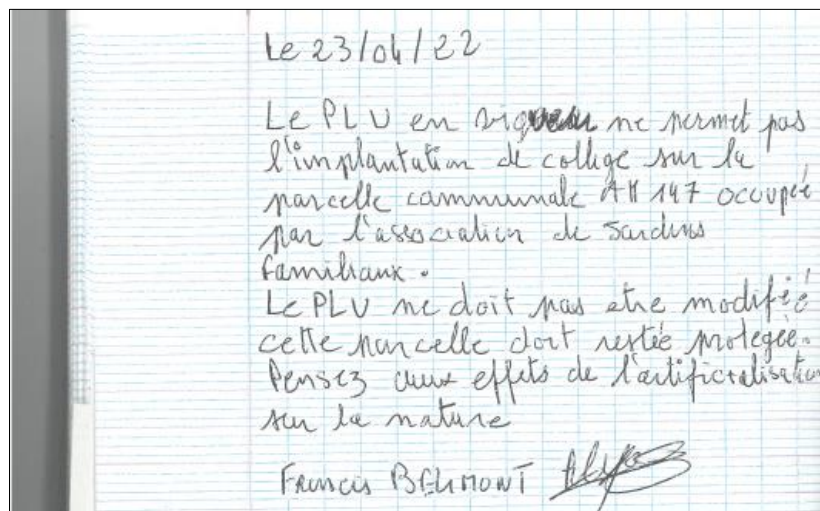 Le 23/04/22
Le PLU en vigueur ne permet pas
l'implantation de collège sur la
parcelle communale AH 147 occupée
par l'association de Jardins
familiaux.
Le PLU ne doit pas etre modifié
cette parcelle doit restée protegée.
Pensez aux effets de l'artificialisation
sur la nature
Francis BELMONT